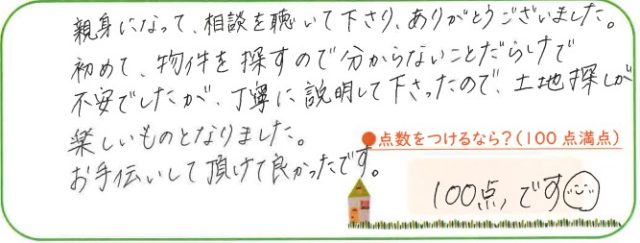 親身になって、相談を聴いて下さり、ありがとうございました。
初めて、物件を探すので分からないことだらけで
不安でしたが、丁寧に説明して下さったので、土地探しが
楽しいものとなりました。
お手伝いして頂けて良かったです。
●点数をつけるなら?(100点満点)
100点です